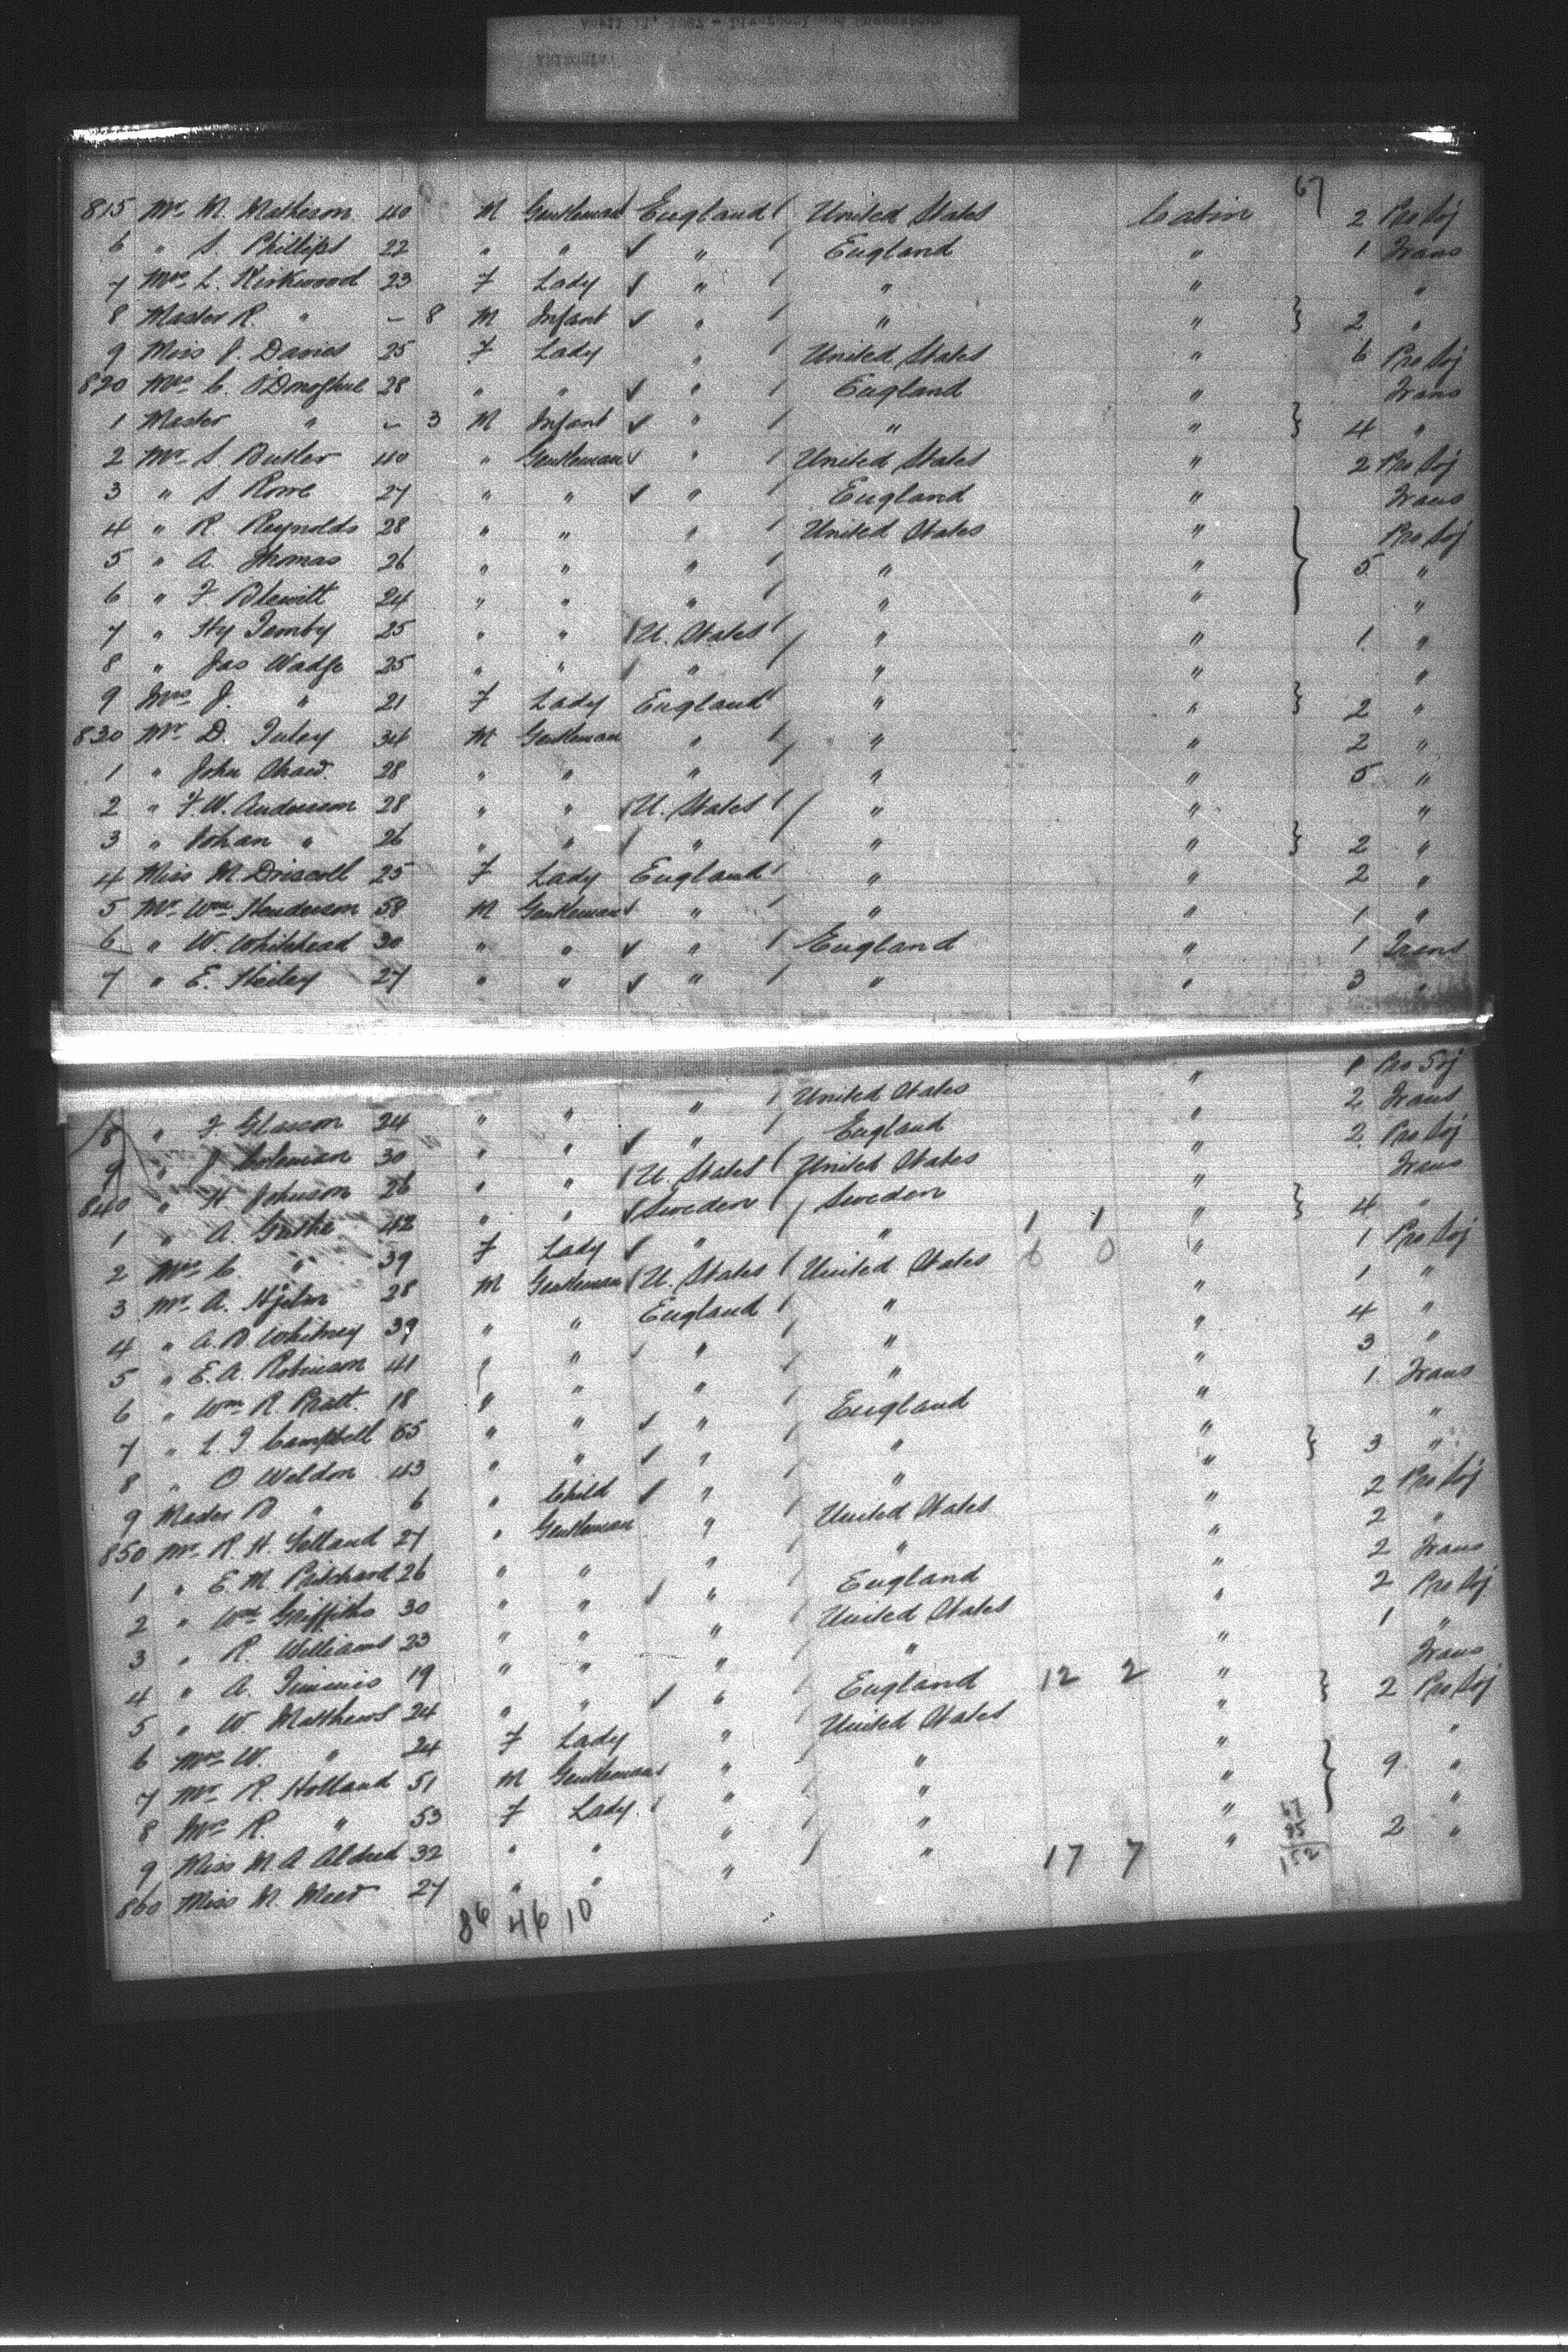 67
815 Mr. M. Matheson 40 M Gentleman England United States Cabin 2 Pro Soj
6 " S. Phillips 22 " " " England " 1 Trans
7 Mrs L. Kirkwood 23 F Lady " " " "
8 Master R. " - 8 M Infant " " " 2 "
9 Miss J. Davies 25 F Lady " United States " 6 Pro Soj
820 Mrs C. O'Donoghue 28 " " " England " Trans
1 Master " - 3 M Infant " " " 4 "
2 Mr. S. Butler 40 " Gentleman " United States " 2 Pro Soj
3 " S. Rowe 27 " " " England " Trans
4 " R. Reynolds 28 " " " United States " Pro Soj
5 " A. Thomas 26 " " " " " 5 "
6 " F. Blewitt 24 " " " " " "
7 " Hy Temby 25 " " U. States " " 1 "
8 " Jas Wadge 25 " " " " " "
9 Mrs J. " 21 F Lady England " " 2 "
830 Mr. D. 34 M Gentleman " " " 2 "
1 " John Shaw. 28 " " " " " 5 "
2 " F. W. Anderson 28 " " U. States " " "
3 " Johan " 26 " " " " " 2 "
4 Miss M. Driscoll 25 F Lady England " " 2 "
5 Mr. Wm Henderson 58 M Gentleman " " " 1 "
6 " W. Whitehead 30 " " " England " 1 Trans
7 " E. 27 " " " " " 3 "
8 " F. Glasson 24 " " " United States " 1 Pro Soj
9 " J. Coleman 30 " " " England " 2 Trans
840 " H. Johnson 26 " " U. States United States " 2 Pro Soj
1 " A. 42 " " Sweden Sweden " Trans
2 Mrs C. " 39 F Lady " " 1 1 " 4 "
3 Mr. A. Hjelm 28 M Gentleman U. States United States 6 0 " 1 Pro Soj
4 " A. B Whitney 39 " " England " " 1 "
5 " E. A. Robinson 41 " " " " 4 "
6 " Wm R Pratt. 18 " " " " " 3 "
7 " L J Campbell 65 " " " England " 1 Trans
8 " O Weldon 43 " " " " " "
9 Master B " 6 " Child " " " 3 "
850 Mr. R. H. 27 " Gentleman " United States " 2 Pro Soj
1 " E. M. Pritchard 26 " " " " " 2 "
2 " Wm Griffiths 30 " " " England " 2 Trans
3 " R. Williams 23 " " " United States " 2 Pro Soj
4 " A. Timmis 19 " " " " " 1 "
5 " W Matthews 24 " " " England 12 2 " Trans
6 Mrs W. " 24 F Lady " United States " 2 Pro Soj
7 Mr. R. Holland 51 M Gentleman " " " "
8 Mrs R. " 53 F Lady " " " 9 "
9 Miss M. A Aldred 32 " " " " " "
860 Miss M. 27 " " " " 17 7 " 2 "
67
85
152
86 46 10